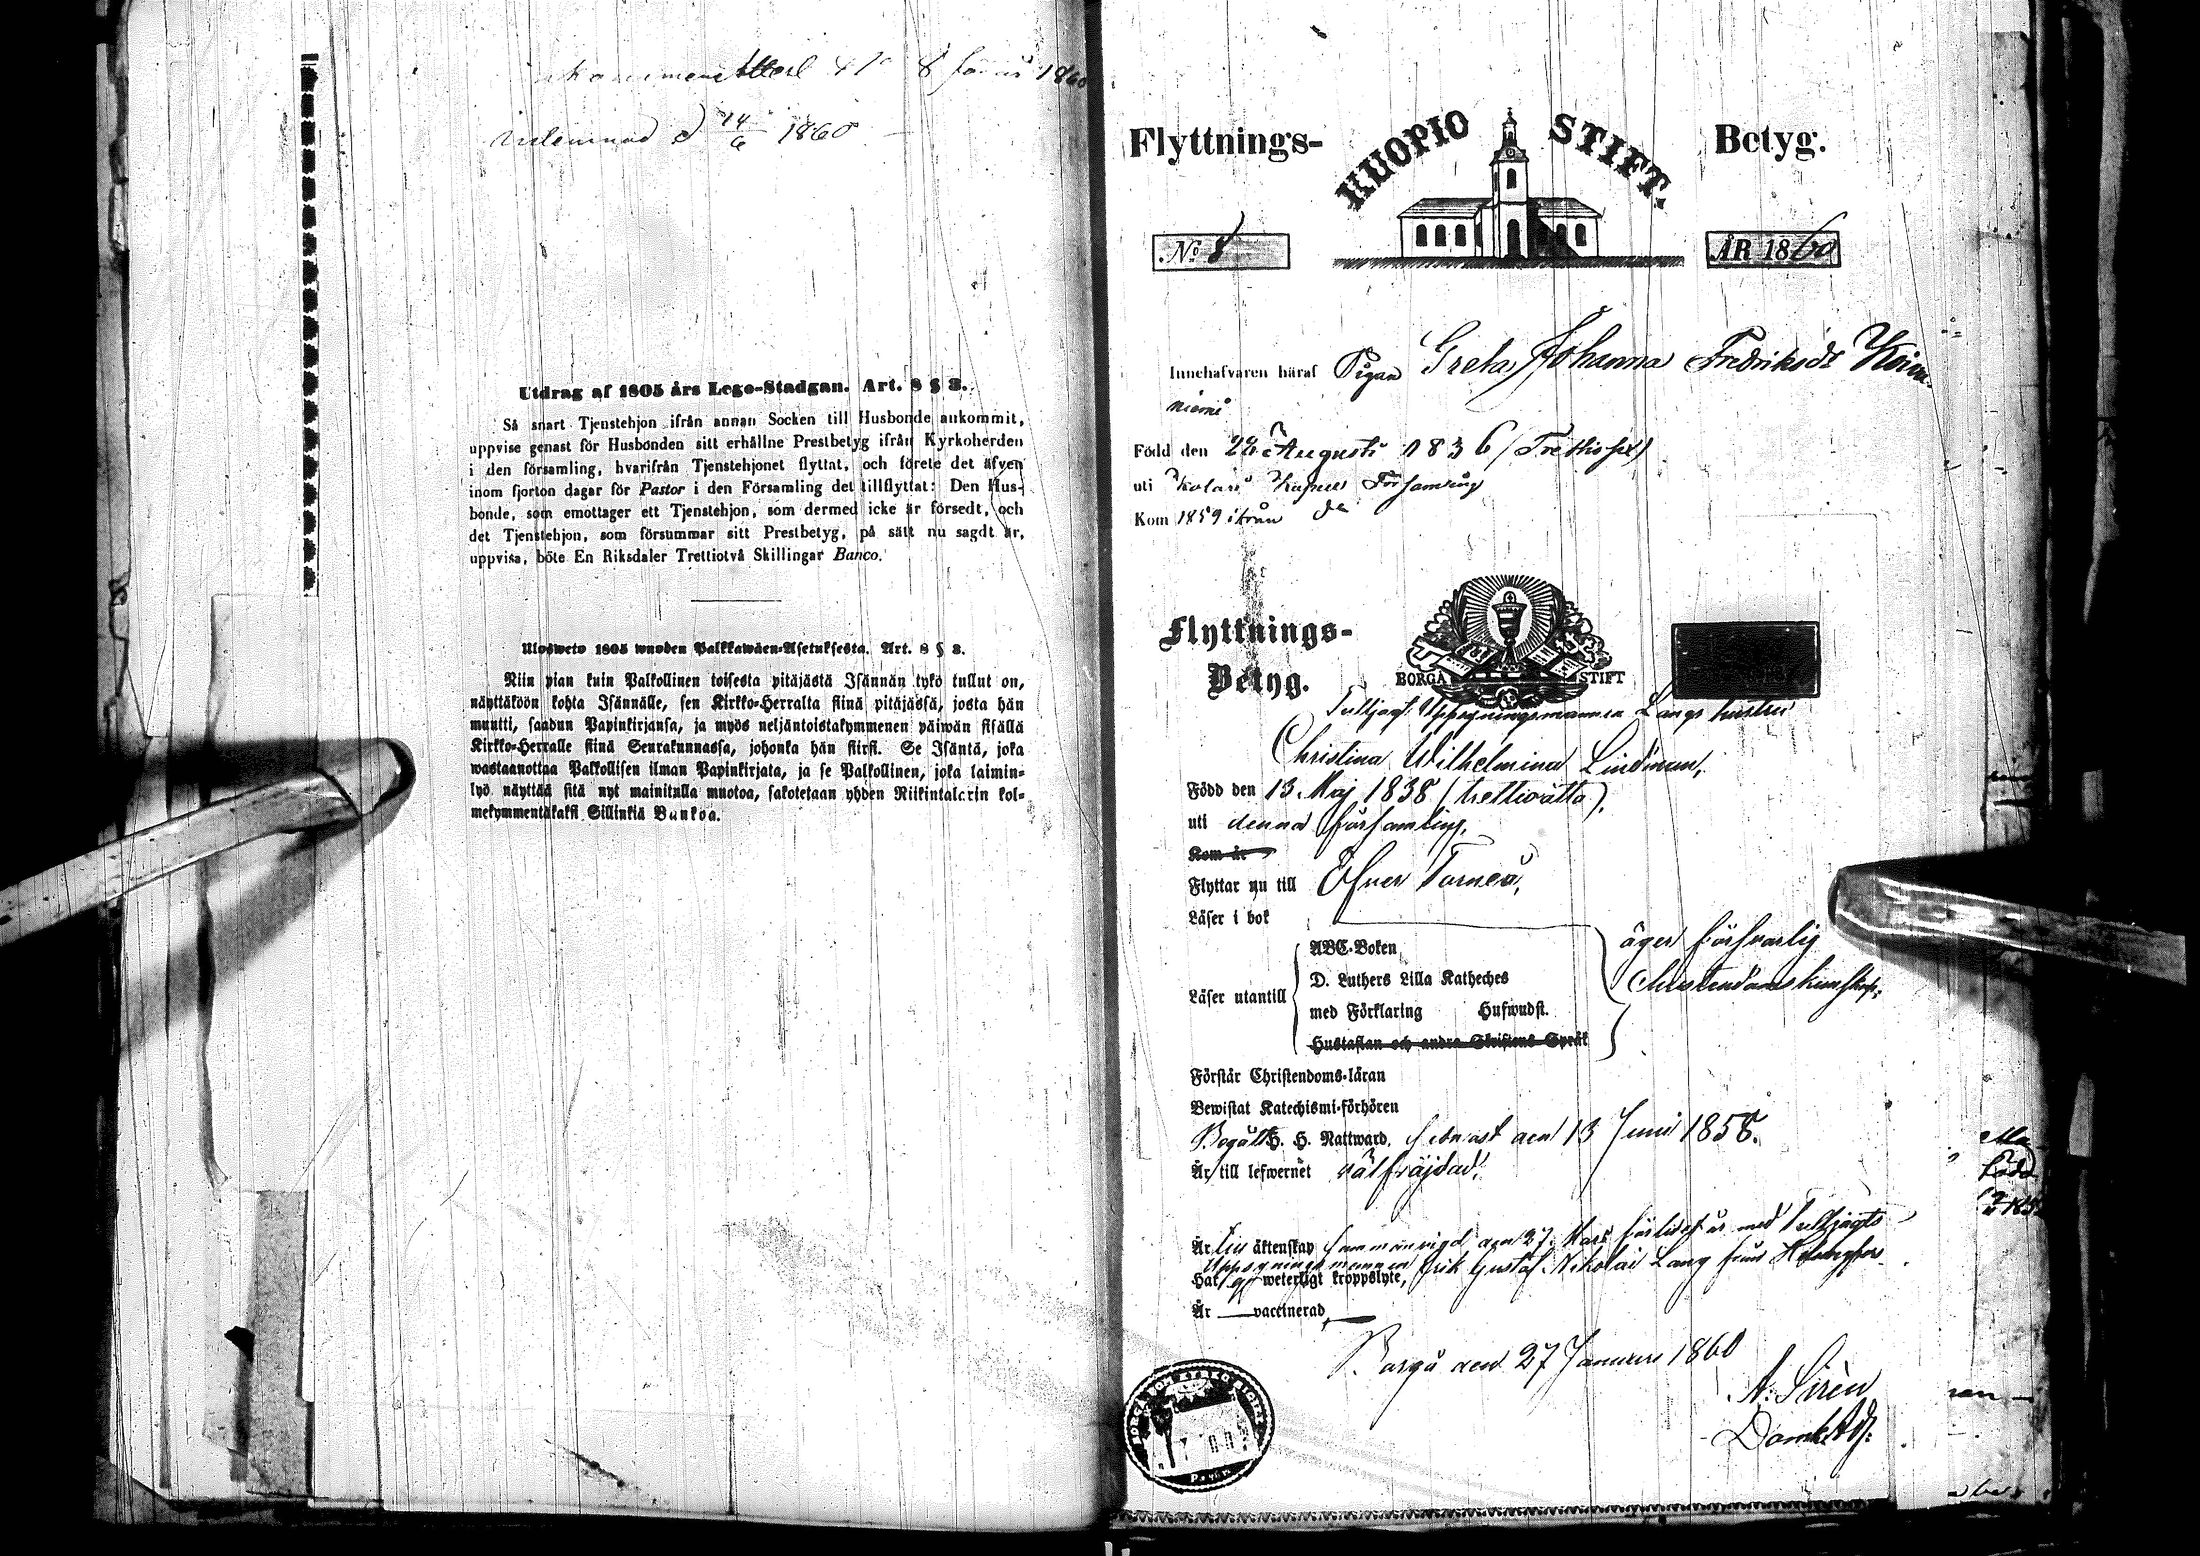 inlemnad d 14/6 1860
Utdrag af 1805 års Lego-Stadgan. Art. 8 § 3.
Så snart Tjenstehjon ifrån annan Socken till Husbonde ankommit,
uppvise genast för Husbonden sitt erhållne Prestbetyg ifrån Kyrkoherden
i den församling, hvarifrån Tjenstehjonet flyttat, och förete det äfven
inom fjorton dagar för Pastor i den Församling det tillflyttat: Den Hus-
bonde, som emottager ett Tjenstehjon, som dermed icke är försedt, och
det Tjenstehjon, som försummar sitt Prestbetyg, på sätt nu sagdt är,
uppvisa, böte En Riksdaler Trettiotvå Skillingar Banco.
Ulosweto 1805 wuoden Palkkawäen-Asetuksesta. Art. 8 § 3.
Niin pian kuin Palkollinen toisesta pitäjästä Isännän tykö tullut on,
näyttäköön kohta Isännälle, sen Kirkko-Herralta siinä pitäjässä, josta hän
muutti, saadun Papinkirjansa, ja myös neljäntoistakymmenen päiwän sisällä
Kirkko-Herralle siinä Seurakunnassa, johonka hän siirsi. Se Isäntä, joka
wastaanottaa Palkollisen ilman Papinkirjata, ja se Palkollinen, joka laimin-
lyö näyttää sitä nyt mainitulla muotoa, sakotetaan yhden Riikintalarin kol-
mekymmentäkaksi Sillinkiä Bankoa.
Flyttnings- KUOPIO STIFT. Betyg.
No 8 ÅR 1860
Innehafvaren häraf Pigan Greta Johanna Fredriksdr
niemi
Född den 26 Augusti 1836 (Trettiosex)
uti Kolari Kapell Församling
Kom 1859 ifrån
Flyttnings-
Betyg.
BORGÅ STIFT
Uppsyningsmannen Langs hustru
Christina Wilhelmina Lindman,
Född den 13 Maj 1838 (trettioåtta),
uti denna församling,
Kom år
Flyttar nu till Öfver Torneå,
Läser i bok
Läser utantill
ABC-Boken
D. Luthers Lilla Katheches
med Förklaring Hufwudst.
Hustaflan och andra Skriftens Språk
äger försvarlig
christendomskunskap;
Förstår Christendoms-läran
Bewistat Katechismi-förhören
Begått H. H. Nattward, senast den 13 Juni 1858.
Är till lefwernet välfräjdad;
Är i äktenskap sammanvigd den 27 Mars förlidet år med Tulljagts
Uppsyningsmannen Erik Gustaf Nikolai Lang från Helsingfors.
Har ej weterligt kroppslyte,
Är vaccinerad,
Borgå den 27 Januari 1860
A. Sirén